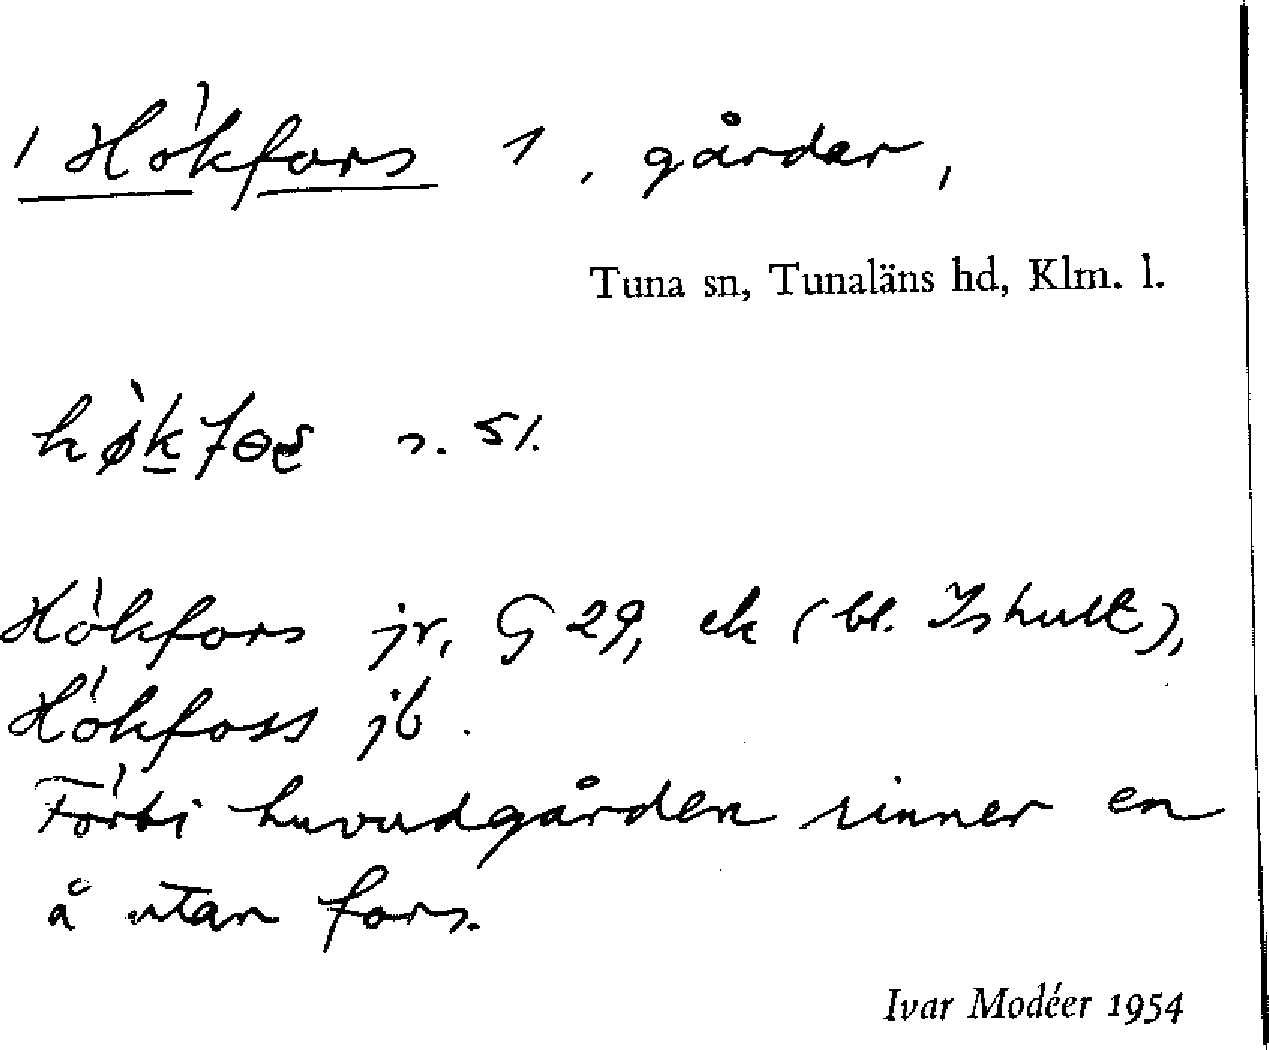 / Hökfors 1, gårdar,
Tuna sn, Tunaläns hd, Klm. l.
s. 51.
Hökfors jr, G 29, ek (bl. Ishult),
Hökfoss jb.
Förbi huvudgården rinner en
å utan fors.
Ivar Modéer 1954